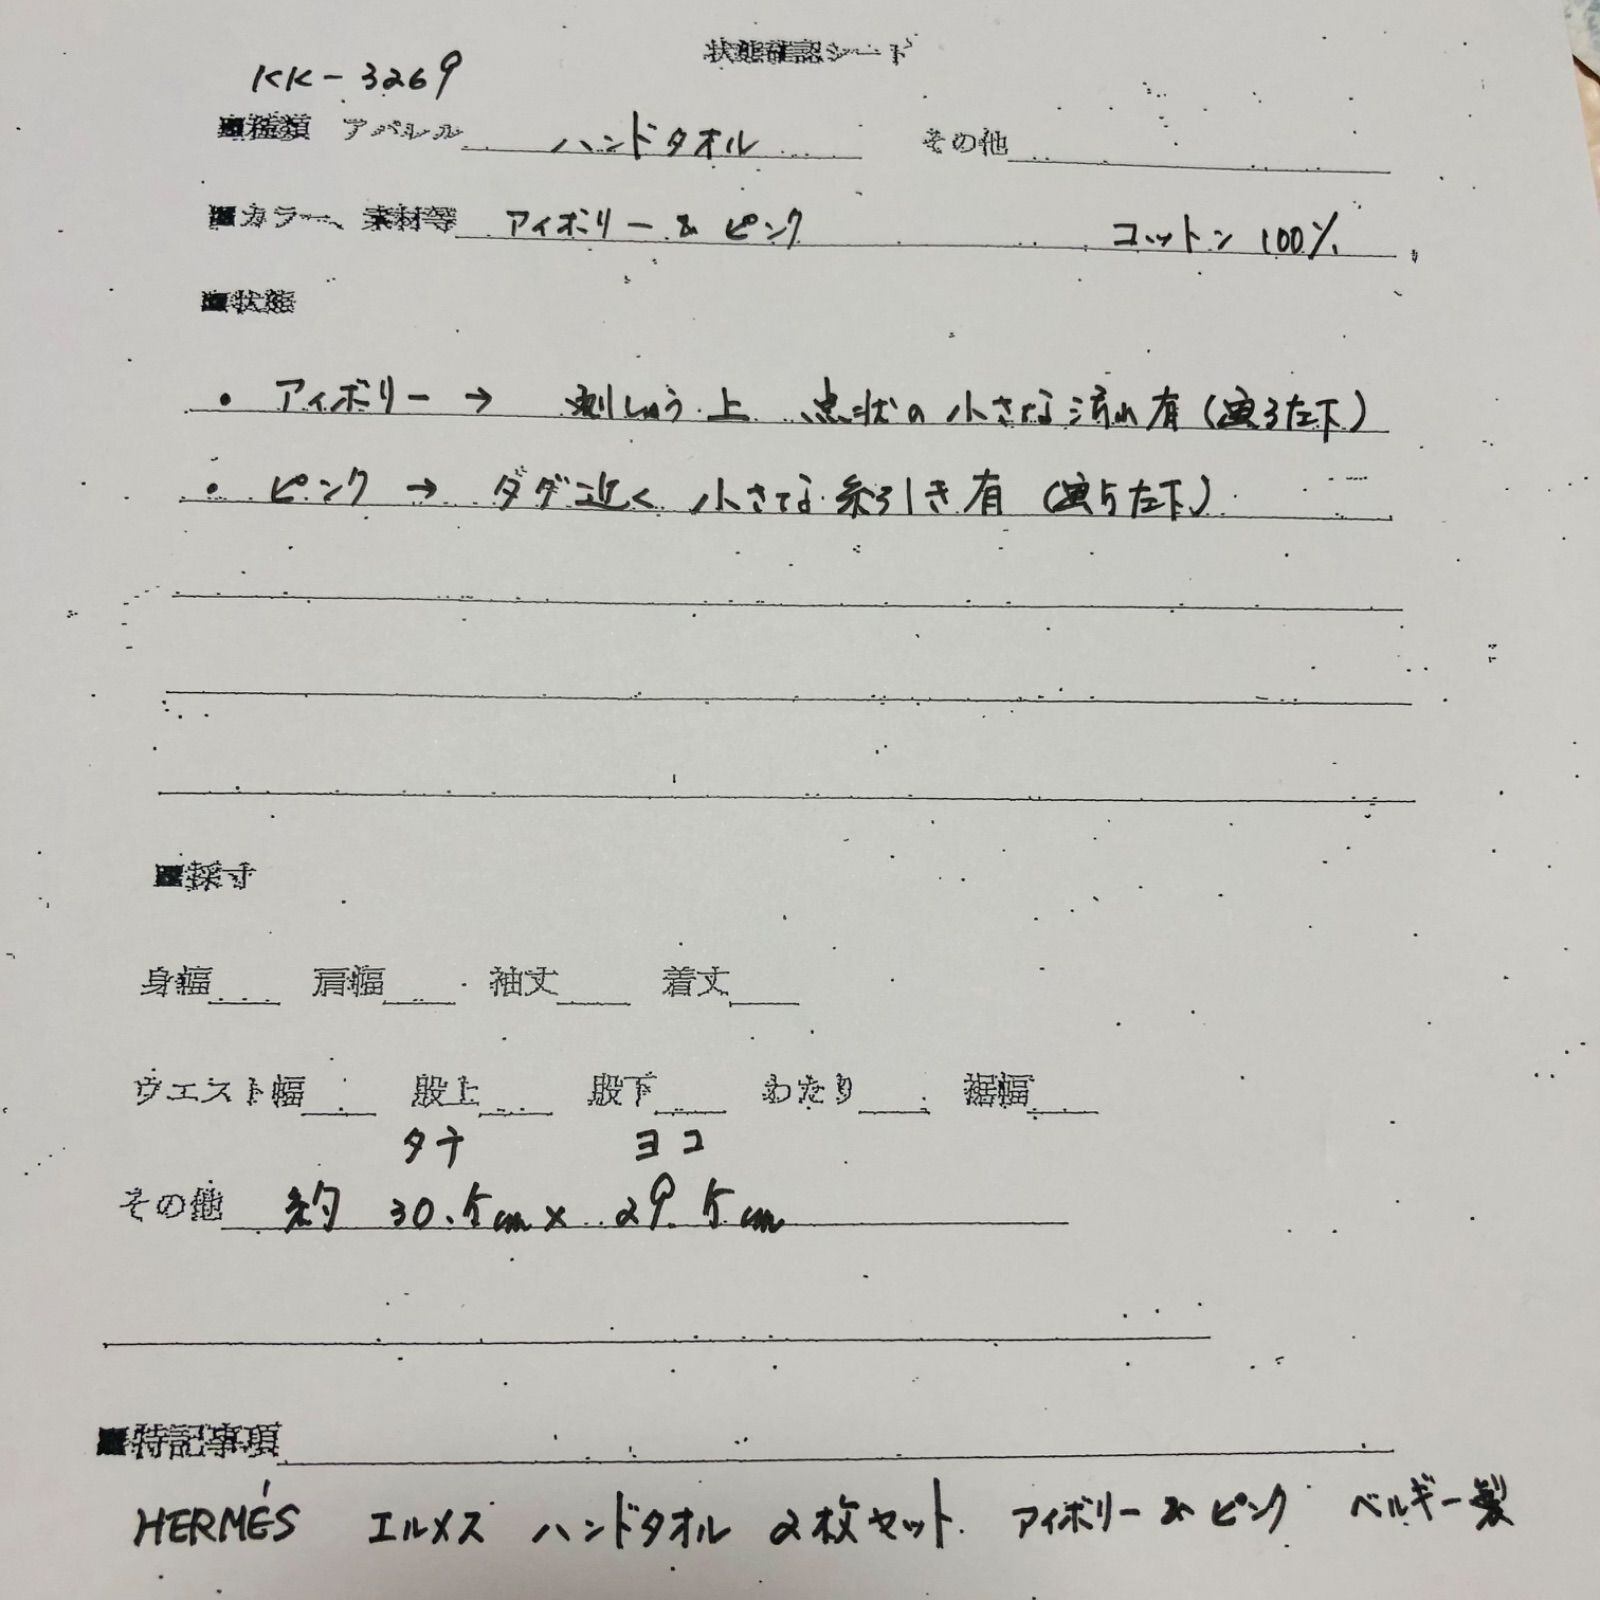 状態確認シート
KK-3269
■種類 アパレル ハンドタオル その他
■カラー、素材等 アイボリー & ピンク コットン 100%
■状態
・アイボリー → 刺しゅう上 点状の小さな汚れ有 (裏3左下)
・ピンク → タグ近く 小さな糸引き有 (裏5左下)
■採寸
身幅 肩幅 袖丈 着丈
ウエスト幅 股上 股下 わたり 裾幅
タテ ヨコ
その他 約 30.5cm × 29.5cm
■特記事項
HERMÉS エルメス ハンドタオル 2枚セット アイボリー & ピンク ベルギー製